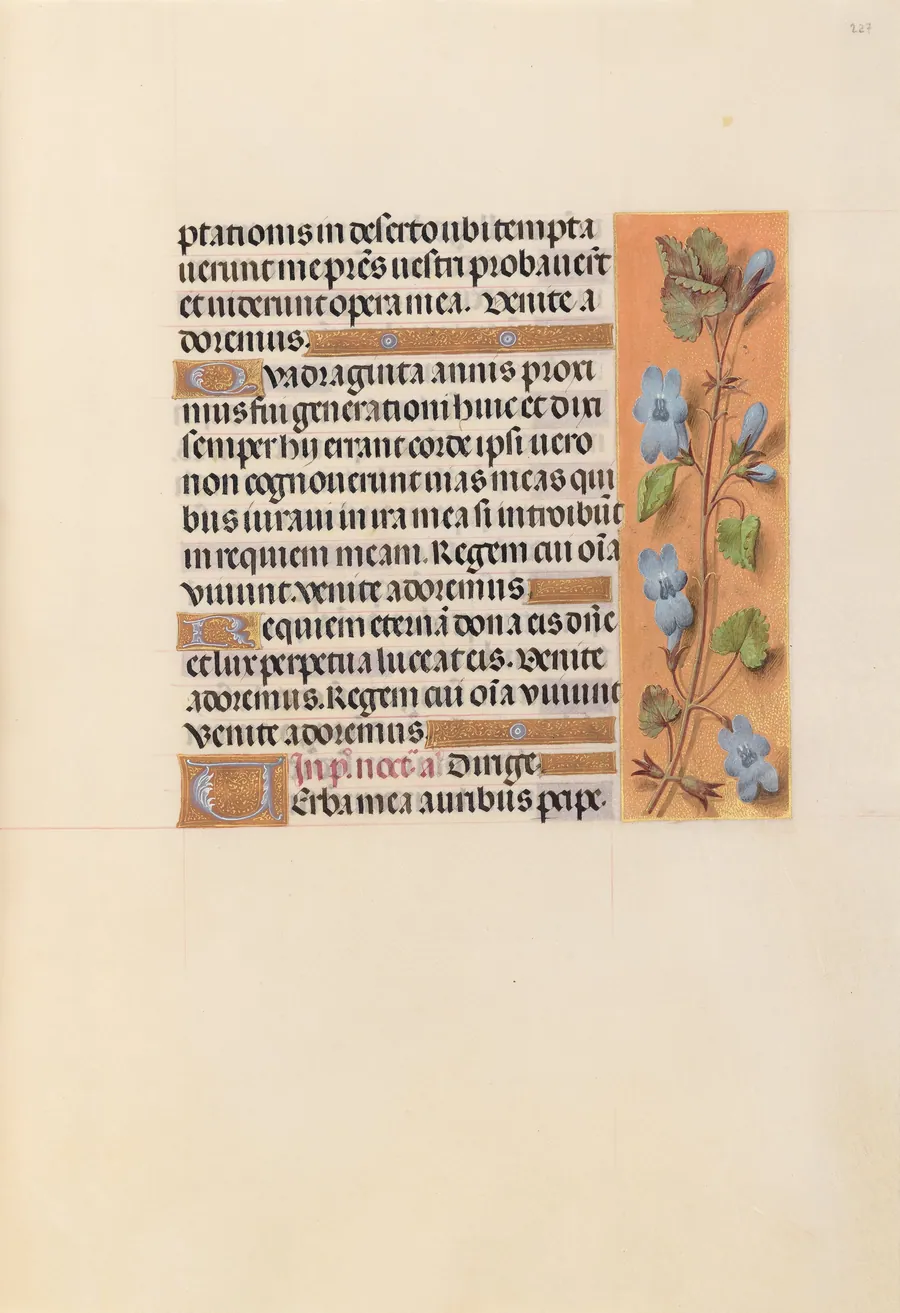 227
ptationis in deserto ubi tempta
uerunt me prēs uestri probauerūt
et uiderunt opera mea. Venite a
doremus.
Quadraginta annis proxi
mus fui generationi huic et dixi
semper hij errant corde ipsi uero
non cognouerunt uias meas qui
bus iuraui in ira mea si introibūt
in requiem meam. Regem cui oīa
viuunt. venite adoremus
Requiem eternā dona eis dn̄e
et lux perpetua luceat eis. Venite
adoremus. Regem cui oīa viuunt
Venite adoremus
In p.º noct. a Dirige
UErba mea auribus ꝑcipe.